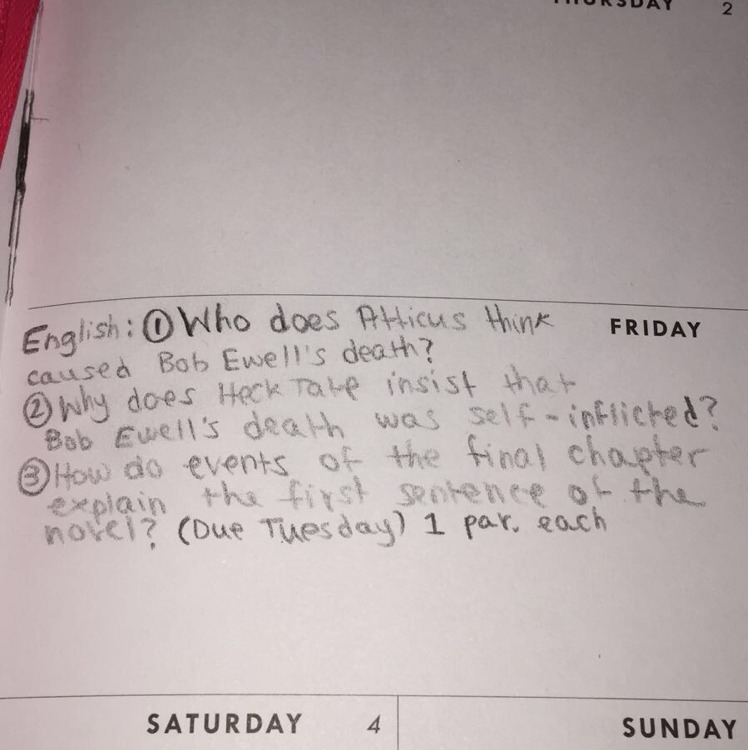 THURSDAY 2
English: ① Who does Atticus think
FRIDAY
caused Bob Ewell's death?
② Why does Heck Tate insist that
Bob Ewell's death was self-inflicted?
③ How do events of the final chapter
explain the first sentence of the
novel? (Due Tuesday) 1 par. each
SATURDAY 4
SUNDAY